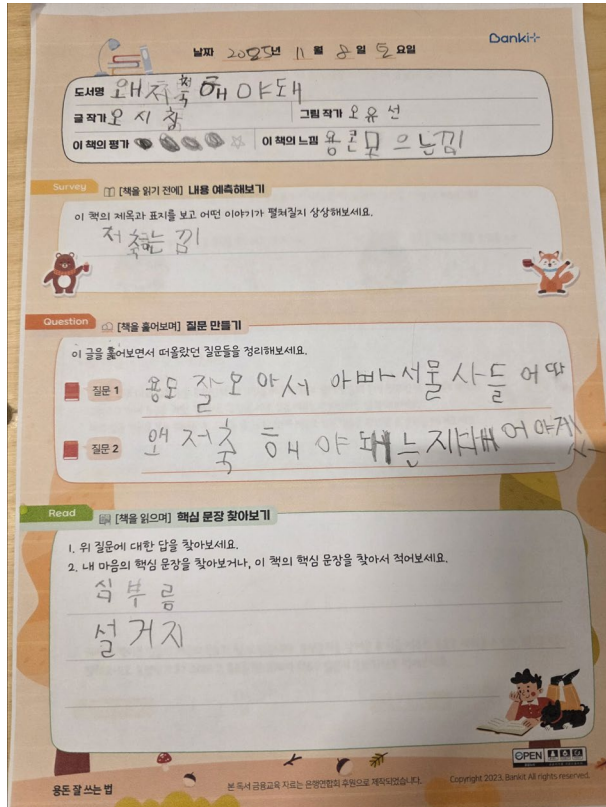 Banki+
날짜 2025년 11월 8일 토요일
도서명 왜저축해야돼
글 작가 오시창 그림 작가 오유선
이 책의 평가 이 책의 느낌 용론모으는낌
Survey [책을 읽기 전에] 내용 예측해보기
이 책의 제목과 표지를 보고 어떤 이야기가 펼쳐질지 상상해보세요.
저축는낌
Question [책을 훑어보며] 질문 만들기
이 글을 훑어보면서 떠올랐던 질문들을 정리해보세요.
질문 1 용모 잘모아서 아빠서물사들어따
질문 2 왜 저축해야돼는지배어야겠
Read [책을 읽으며] 핵심 문장 찾아보기
1. 위 질문에 대한 답을 찾아보세요.
2. 내 마음의 핵심 문장을 찾아보거나, 이 책의 핵심 문장을 찾아서 적어보세요.
심부름
설거지
OPEN
용돈 잘 쓰는 법
본 독서 금융교육 자료는 은행연합회 후원으로 제작되었습니다.
Copyright 2023. Bankit All rights reserved.